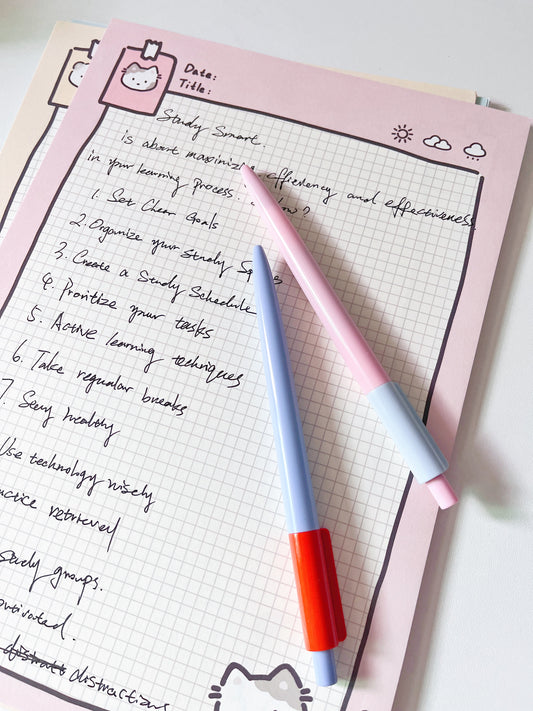 Date:
Title:
Study Smart.
is about maximizing efficiency and effectiveness
in your learning process. How?
1. Set Clear Goals
2. Organize your study Spaces
3. Create a Study Schedule
4. Proritize your tasks
5. Active learning techniques
6. Take regualar breaks
7. Stay healthy
Use technology wisely
retrieval
study groups.
distractions